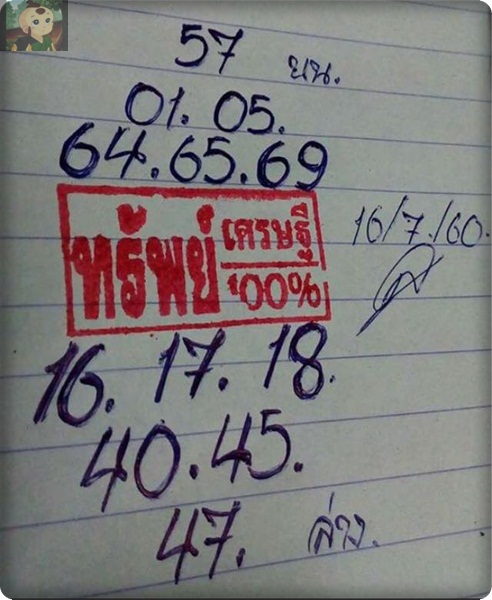 57 บน.
01. 05.
64. 65. 69
ทรัพย์ เศรษฐี
100%
16/7/60.
16. 17. 18.
40. 45.
47. ล่าง.